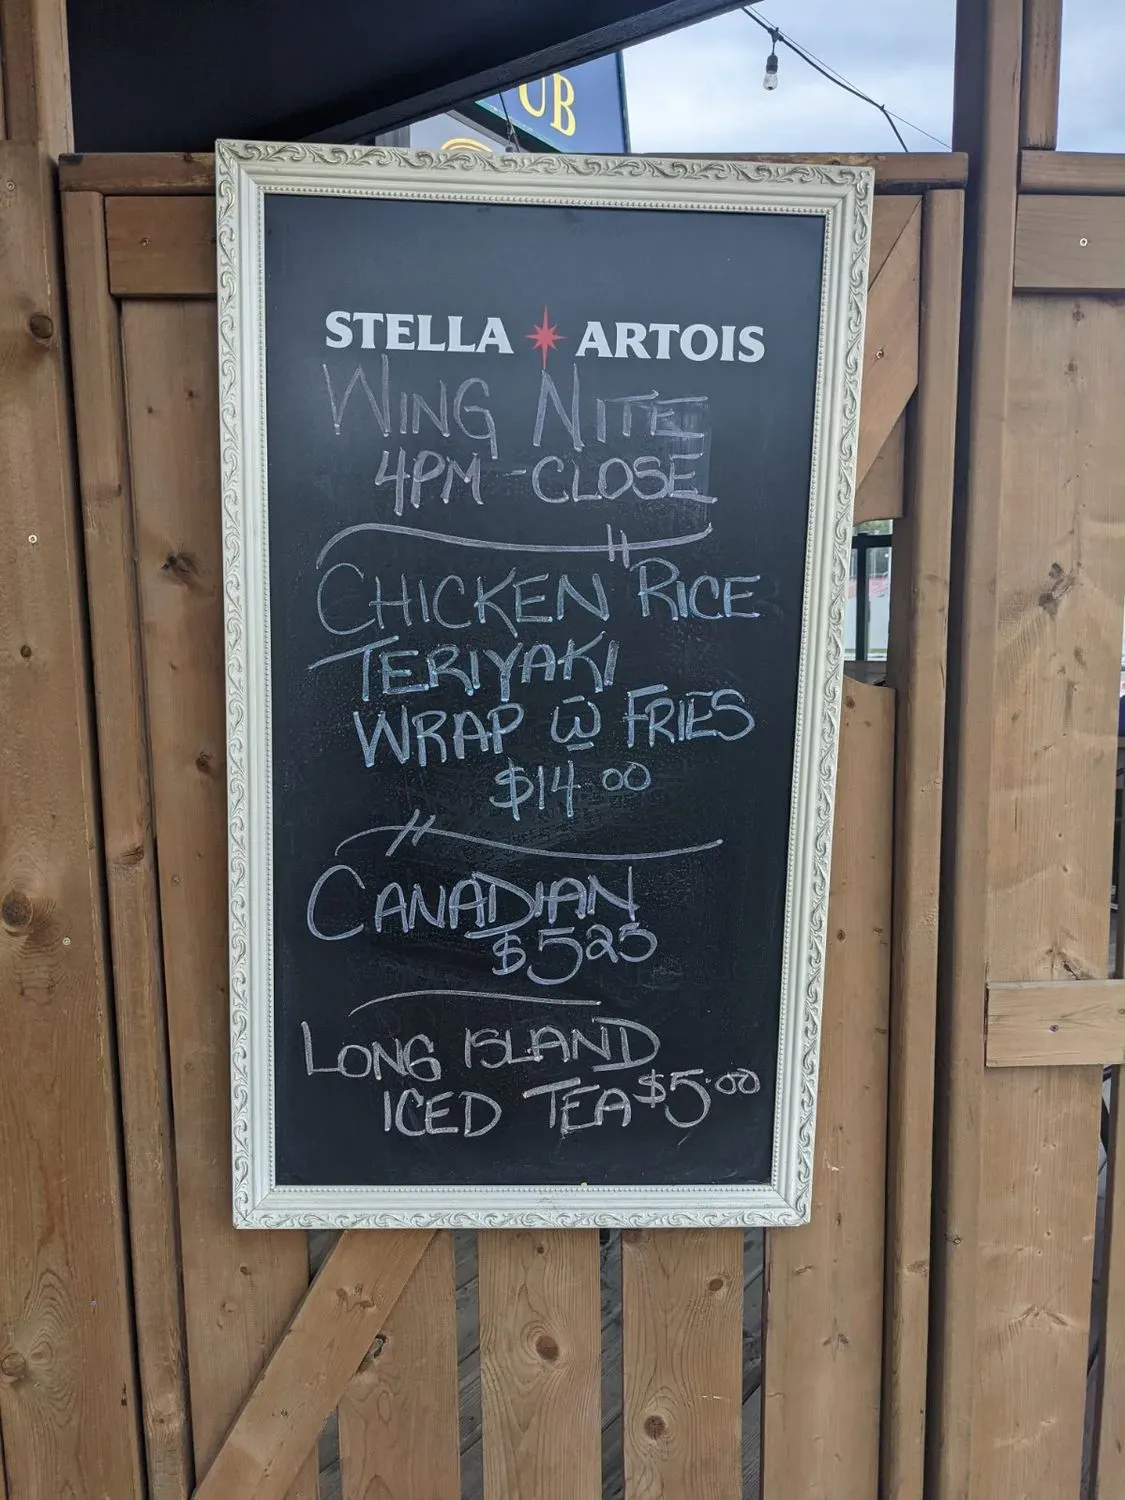 UB
STELLA ARTOIS
WING NITE
4PM - CLOSE
CHICKEN RICE
TERIYAKI
WRAP W FRIES
$14.00
CANADIAN
$525
LONG ISLAND
ICED TEA $5.00